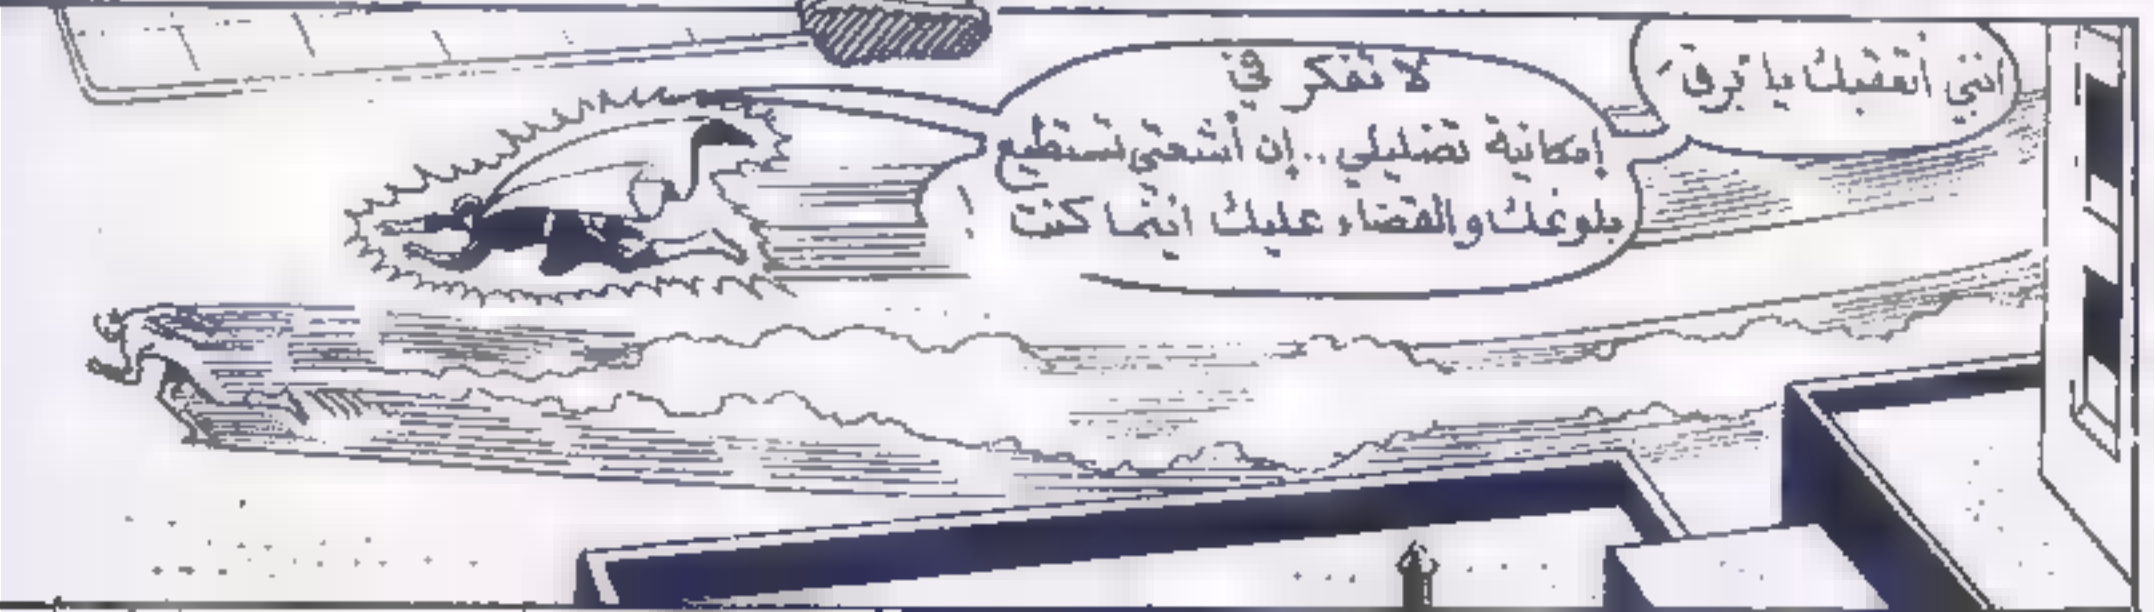 انني أتعقبك يا برق
لا تفكر في
إمكانية تضليلي .. إن أشعتي تستطيع
بلوغك والقضاء عليك اينما كنت !